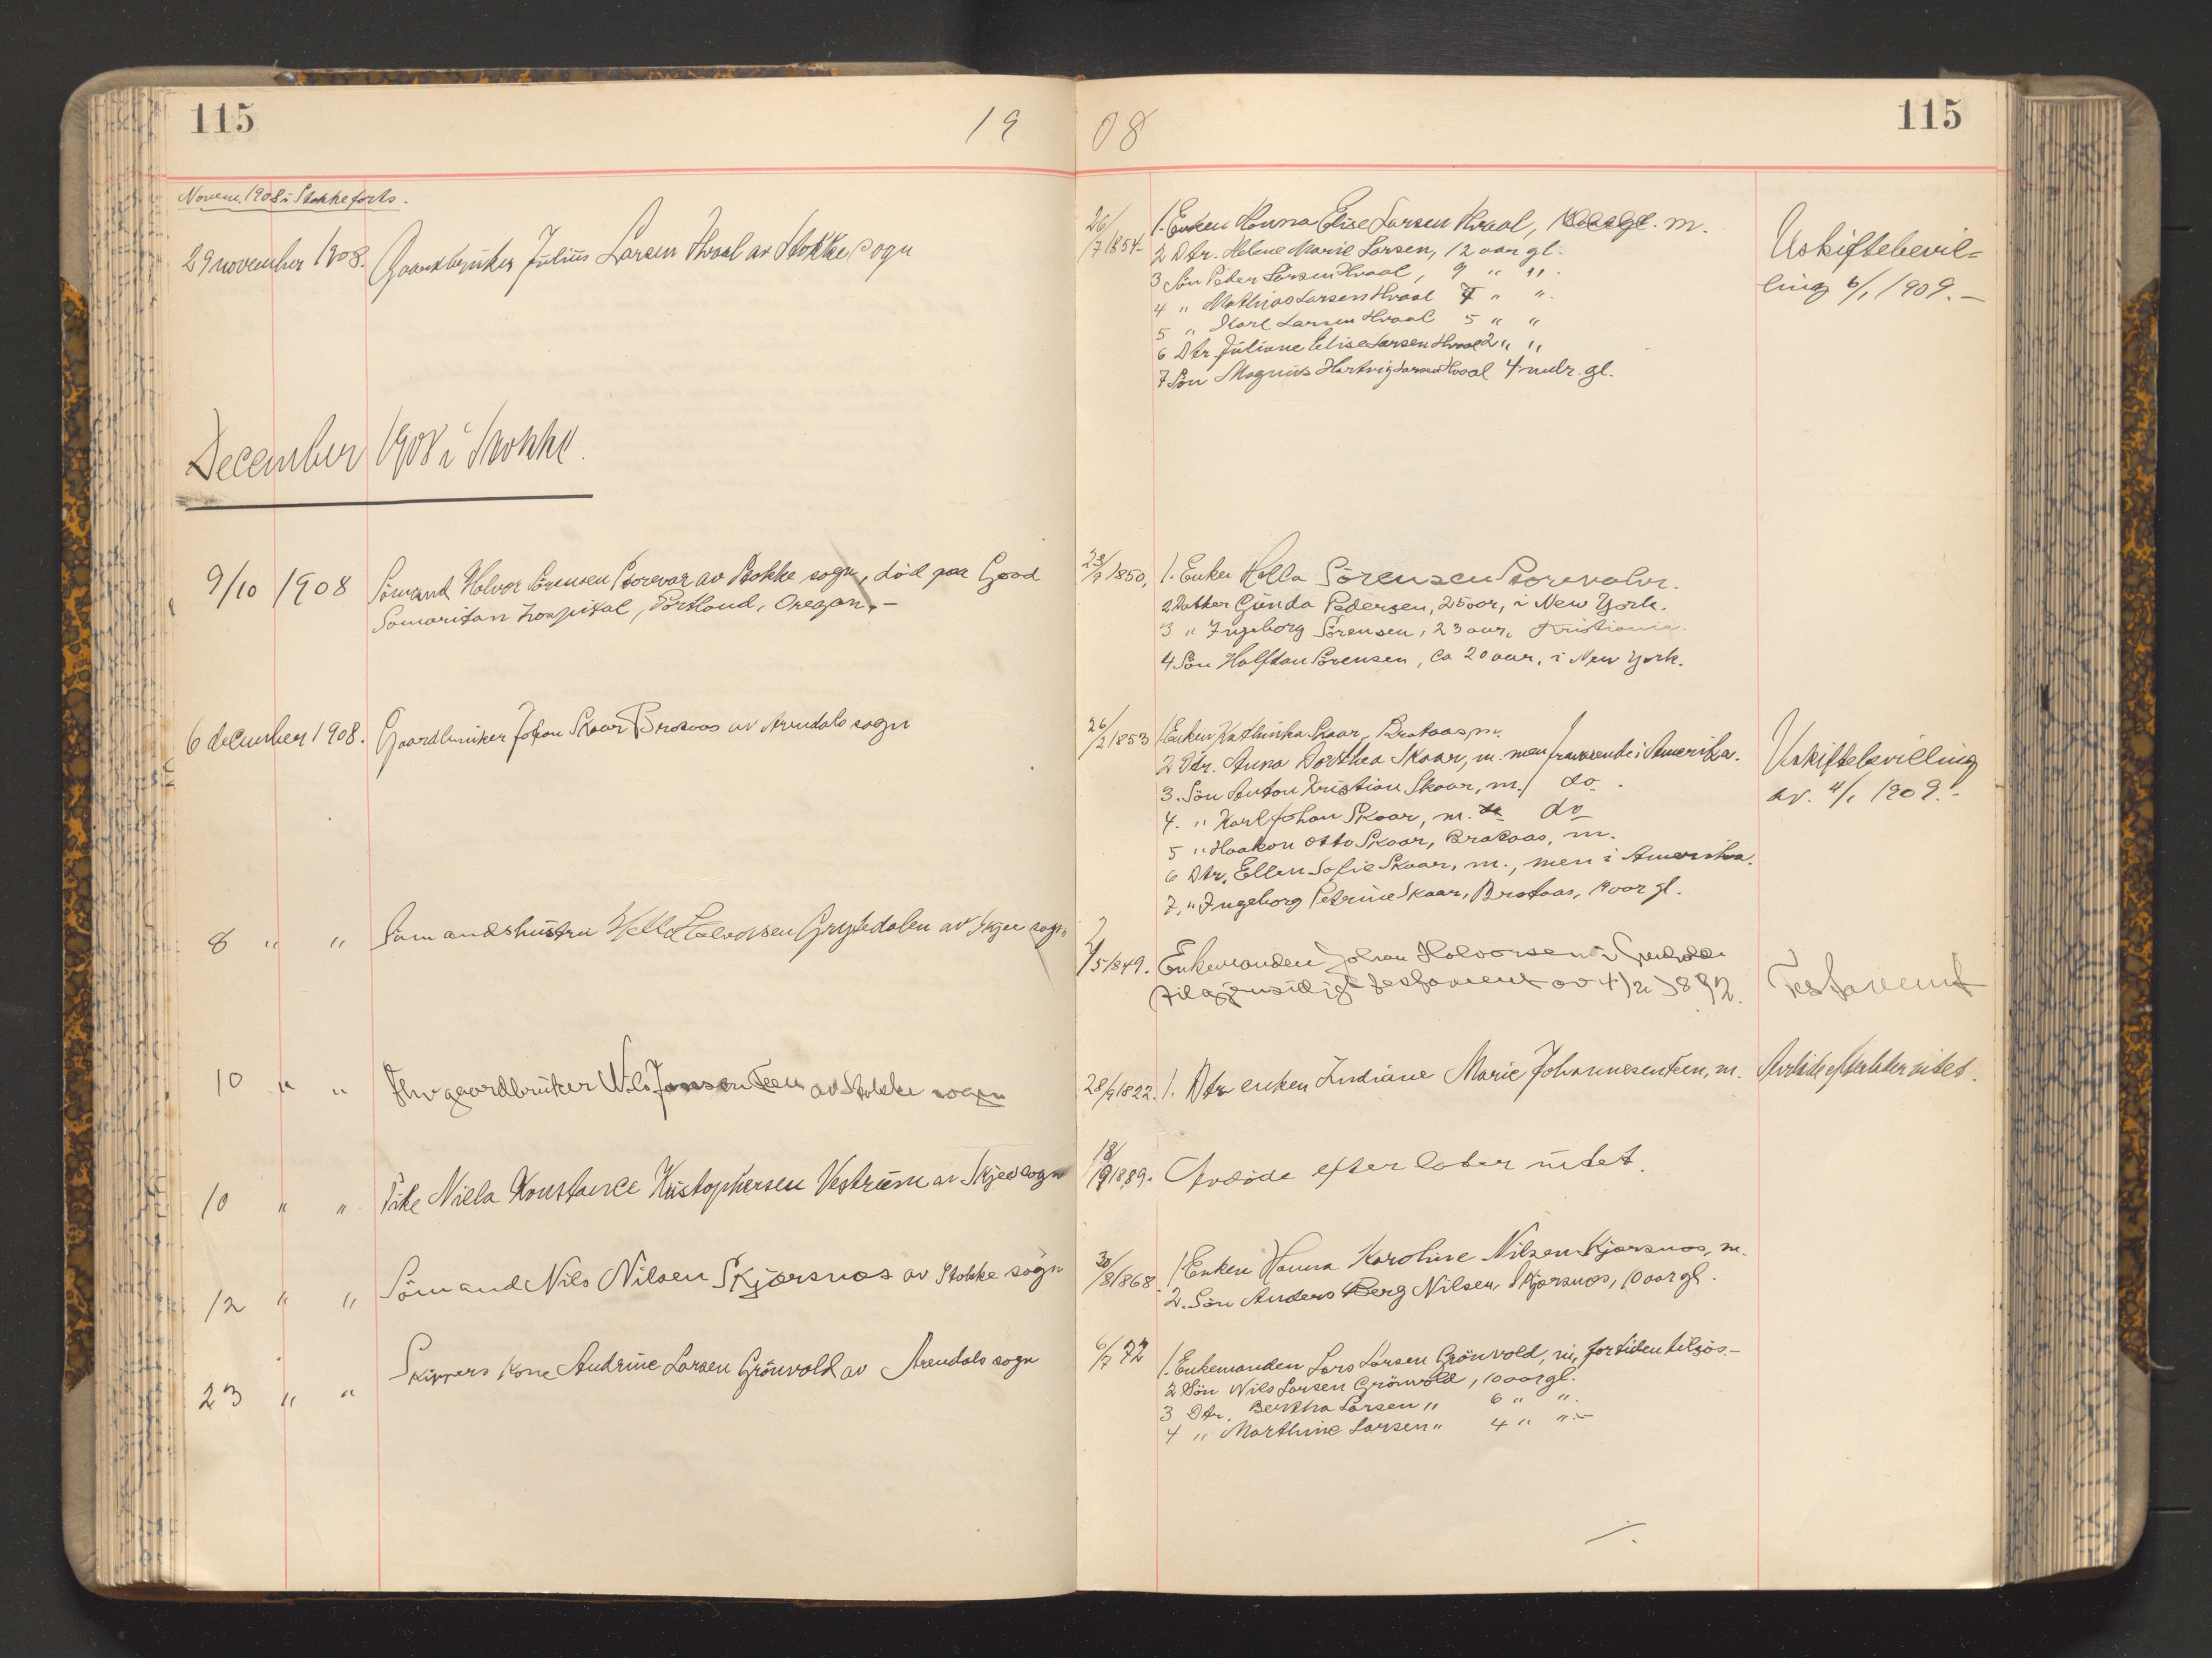 115
19
08
115
Novem. 1908 i Stokke forts.
29 november 1908. Gaardbruker Julius Larsen Hvaal av Stokke sogn
26/7 1854 1. Enken Hanna Elise Larsen Hvaal, m.
2 Dtr. Helene Marie Larsen, 12 aar gl.
3 Sön Peder Larsen Hvaal, 9 " ".
4 " Mathias Larsen Hvaal 7 " ".
5 " Karl Larsen Hvaal 5 " "
6 Dtr. Juliane Elise Larsen Hvaal 2 " "
7 Sön Magnus Hartvig Larsen Hvaal 4 mdr. gl.
Uskiftebevil=
ling 6/1 1909.-
December 1908 i Stokke.
9/10 1908 Sömand Halvor Sörensen Storevar av Stokke sogn, död paa Good
Samaritan hospital, Portland, Oregon.-
23/9 1850, 1. Enke Hella Sörensen Storevahr.
2 Datter Gunda Pedersen, 25 aar, i New York.
3 " Ingeborg Sörensen, 23 aar, Kristiania.
4 Sön Halfdan Sörensen, ca 20 aar, i New York.
6 december 1908. Gaardbruker Johan Skaar Brataas av Arendals sogn
26/2 1853 1 Enken Kathinka Skaar, Brataas m.
2 Dtr. Anna Dorthea Skaar, m. men fraværende i Amerika.
3. Sön Anton Kristian Skaar, m. do.
4. " Karl Johan Skaar, m. do
5 " Haakon Otto Skaar, Brataas, m.
6 Dtr. Ellen Sofie Skaar, m., men i Amerika.
7. " Ingeborg Petrine Skaar, Brataas, aar gl.
Uskiftebevilling
av. 4/1 1909.-
8 " " Sömandshustru Hella Halvorsen Grytedalen av Skjee sogn
/5 1849. Enkemanden Johan Halvorsen i
til gjensidigt testament av 4/2 1892.
Testament
10 " " Fhv gaardbruker Nils Jonsen Feen av Stokke sogn
28/9 1822. 1. Dtr enken Indiane Marie Johannesen Feen, m.
Avdöde efterlater intet.
10 " " Pike Niela Konstance Kristophersen Vestrum av Skjee sogn
18/9 1889. Avdöde efterlater intet.
12 " " Sömand Nils Nilsen Skjærsnæs av Stokke sogn
30/8 1868 1 Enken Hanna Karoline Nilsen Skjærsnæs, m.
2. Sön Anders Berg Nilsen, Skjærsnæs, 10 aar gl.
23 " " Skippers kone Andrine Larsen Grönvold av Arendals sogn
6/7 72 1. Enkemanden Lars Larsen Grönvold, m, for tiden tilsjös.-
2 Sön Nils Larsen Grönvold, 10 aar gl.
3 Dtr. Bertha Larsen " 6 " ".
4 " Marthine Larsen " 4 " ".-